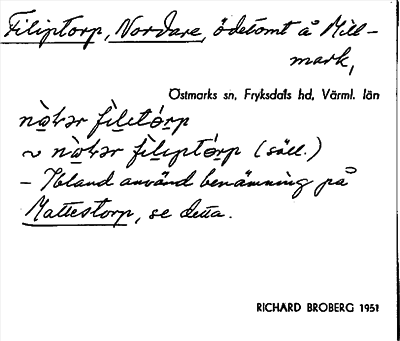 Filiptorp, Nordare, ödetomt å Mill-
mark,
Östmarks sn, Fryksdals hd, Värml. län
nò̱ꝛər fìḷetó̱rp
~ nò̱ꝛər fìliptó̱rp (säll.)
- Ibland använd benämning på
Mattestorp, se detta.
RICHARD BROBERG 1951